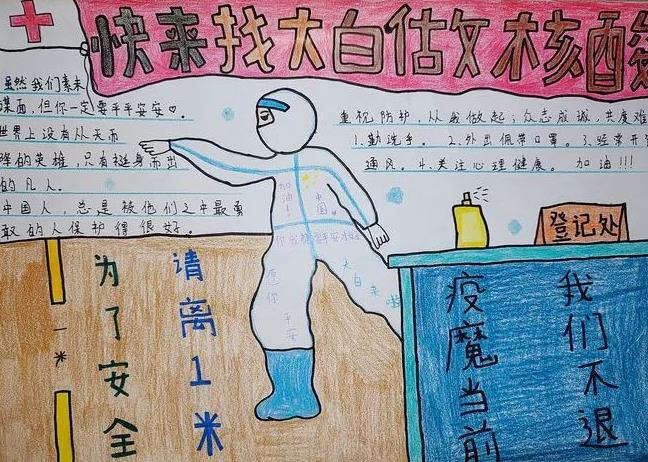 快来找大白做核酸
虽然我们素未
谋面，但你一定要平平安安♡。
世界上没有从天而
降的英雄，只有挺身而出
的凡人。
中国人，总是被他们之中最勇
敢的人保护得很好。
重视防护，从我做起；众志成诚，共度难
1.勤洗手。 2.外出佩带口罩。3.经常开
通风。4.关注心理健康。 加油!!!
加油!
中国
愿你
平安
大白来啦
登记处
为了安全
请离1米
疫魔当前
我们不退